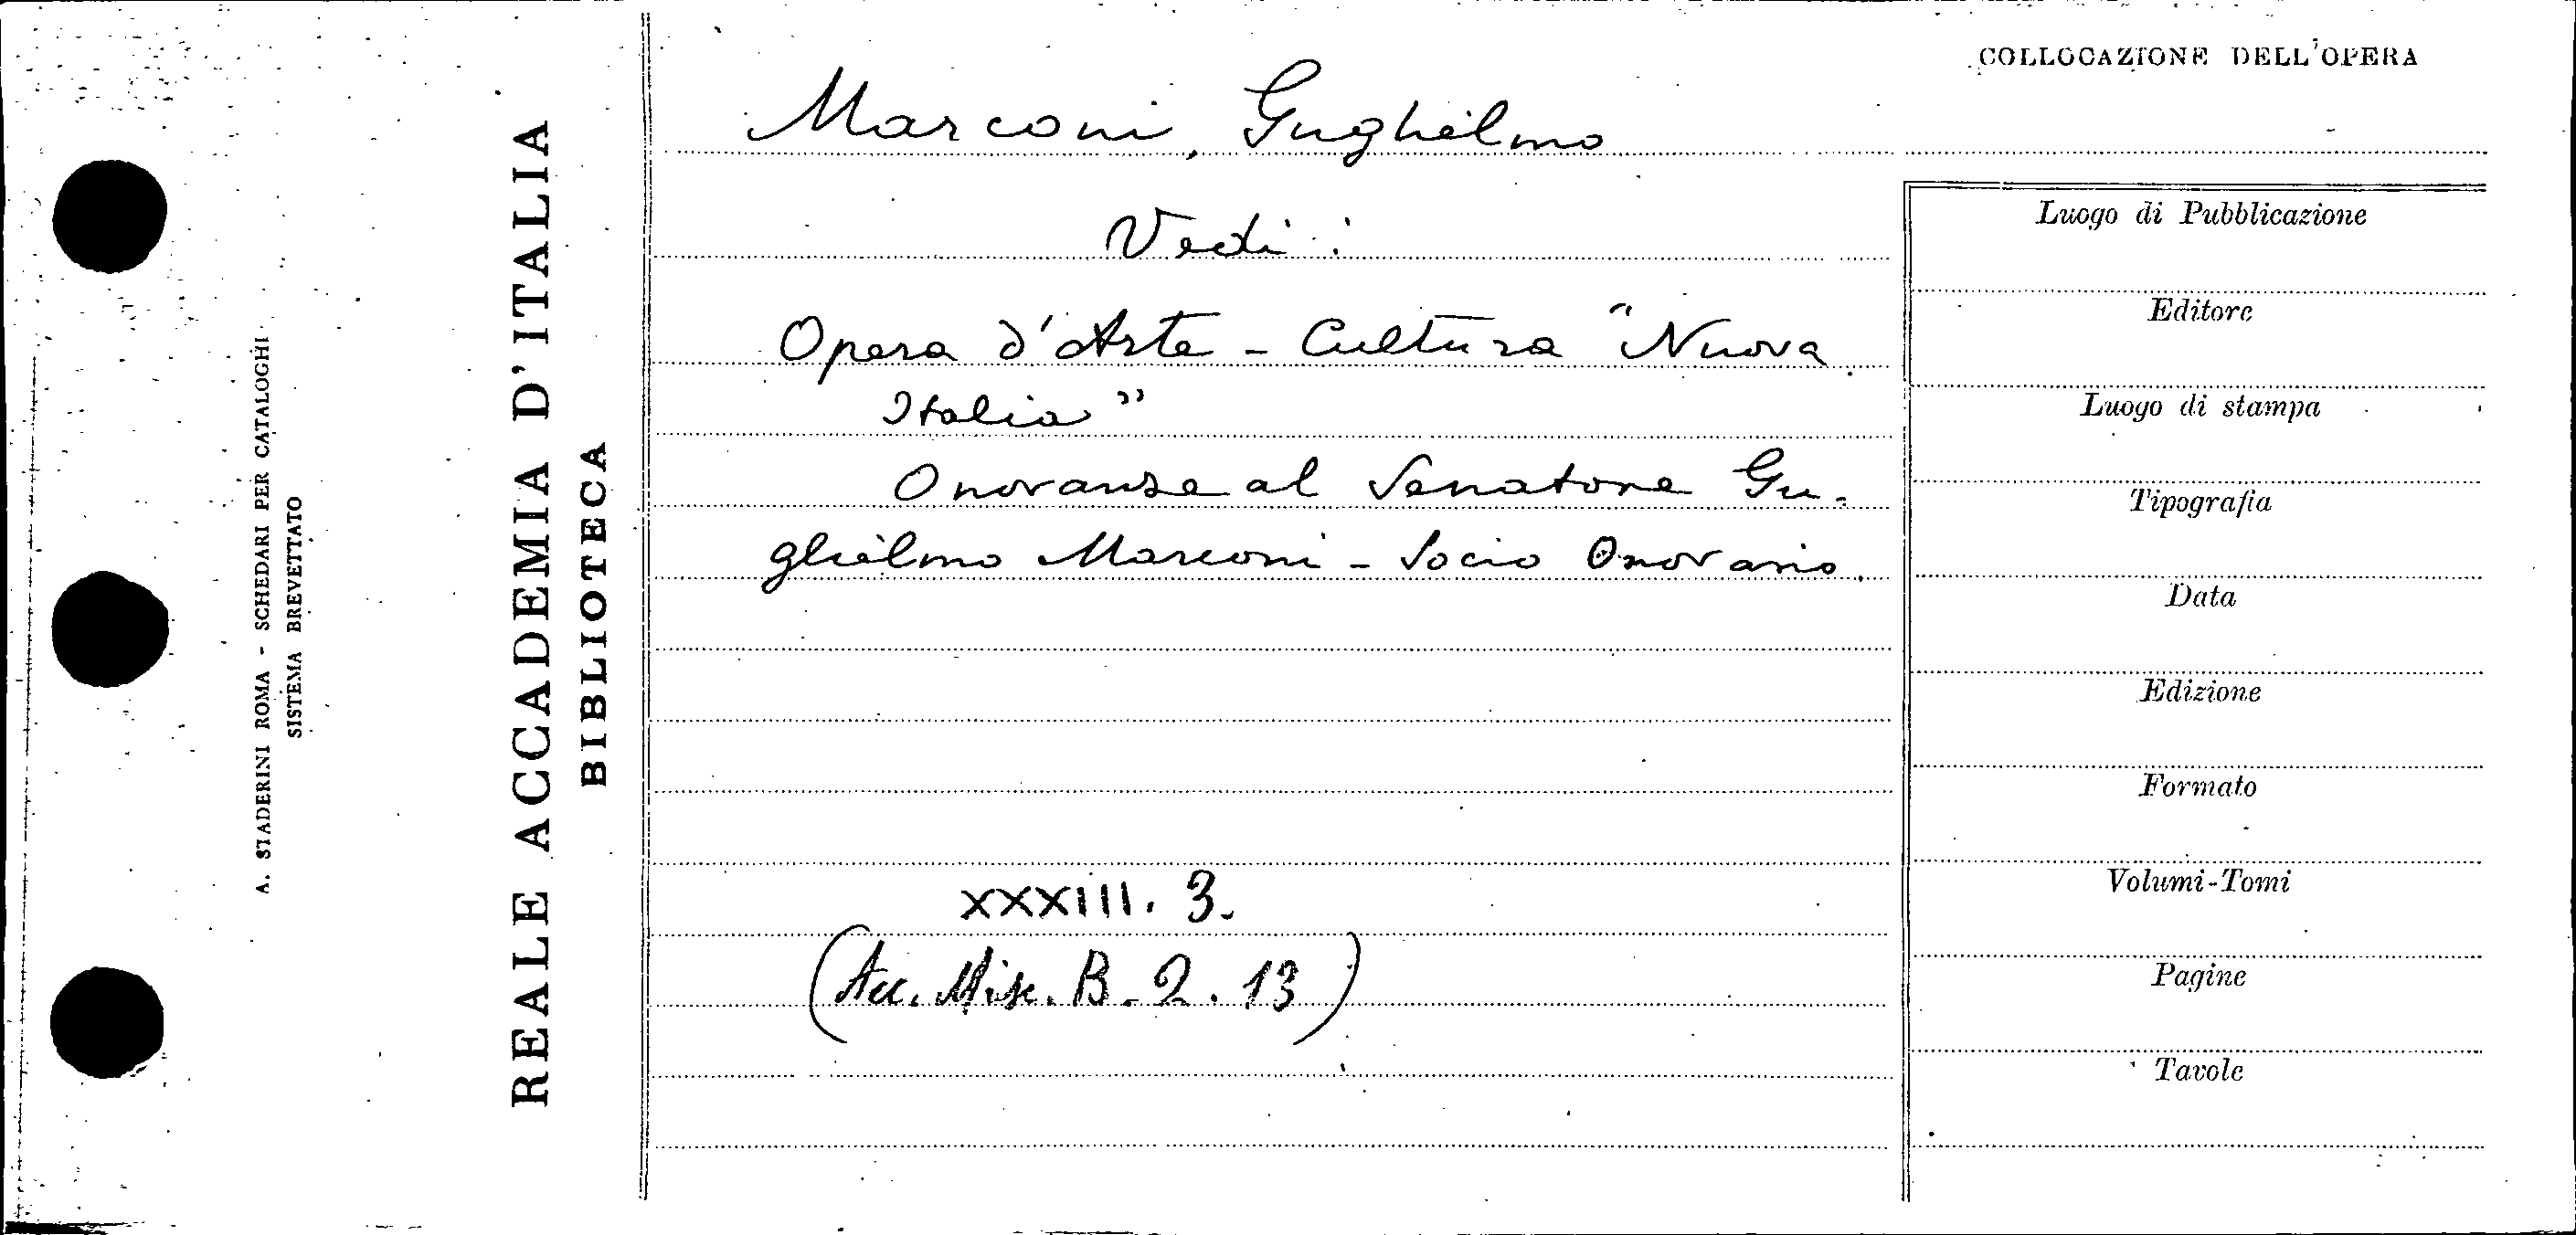 A. STADERINI ROMA - SCHEDARI PER CATALOGHI
SISTEMA BREVETTATO
REALE ACCADEMIA D'ITALIA
BIBLIOTECA
Marconi, Guglielmo
Vedi:
Opera d'Arte - Cultura "Nuova
Italia"
Onoranze al Senatore Gu-
glielmo Marconi - Socio Onorario.
XXXIII. 3.
(Acc. Misc. B. 2. 13)
COLLOCAZIONE DELL'OPERA
Luogo di Pubblicazione
Editore
Luogo di stampa
Tipografia
Data
Edizione
Formato
Volumi-Tomi
Pagine
Tavole